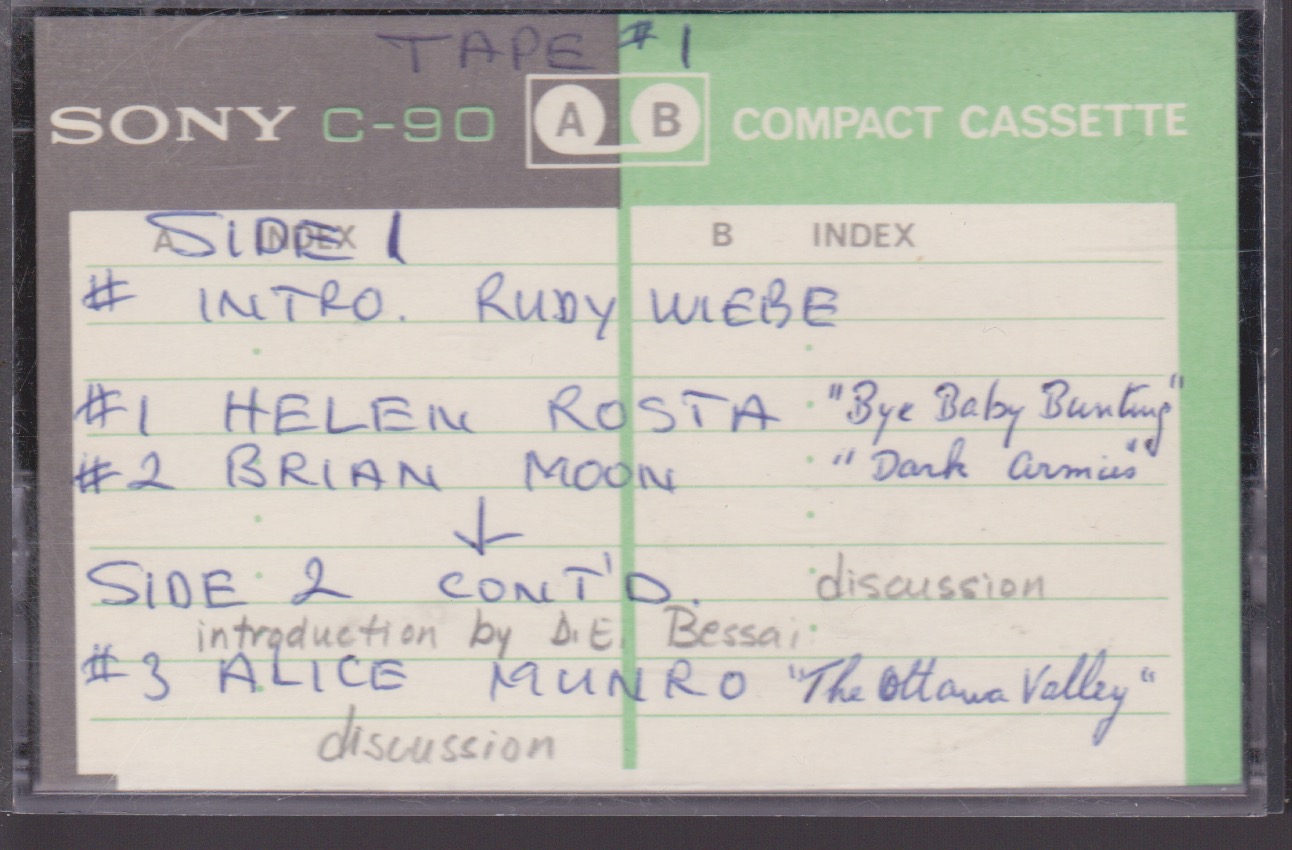 TAPE #1
SONY C-90 A B COMPACT CASSETTE
A INDEX B INDEX
SIDE 1
# INTRO. RUDY WIEBE
#1 HELEN ROSTA "Bye Baby Bunting"
#2 BRIAN MOON "Dark Armies"
SIDE 2 CONT'D. discussion
introduction by D.E. Bessai
#3 ALICE MUNRO "The Ottawa Valley"
discussion